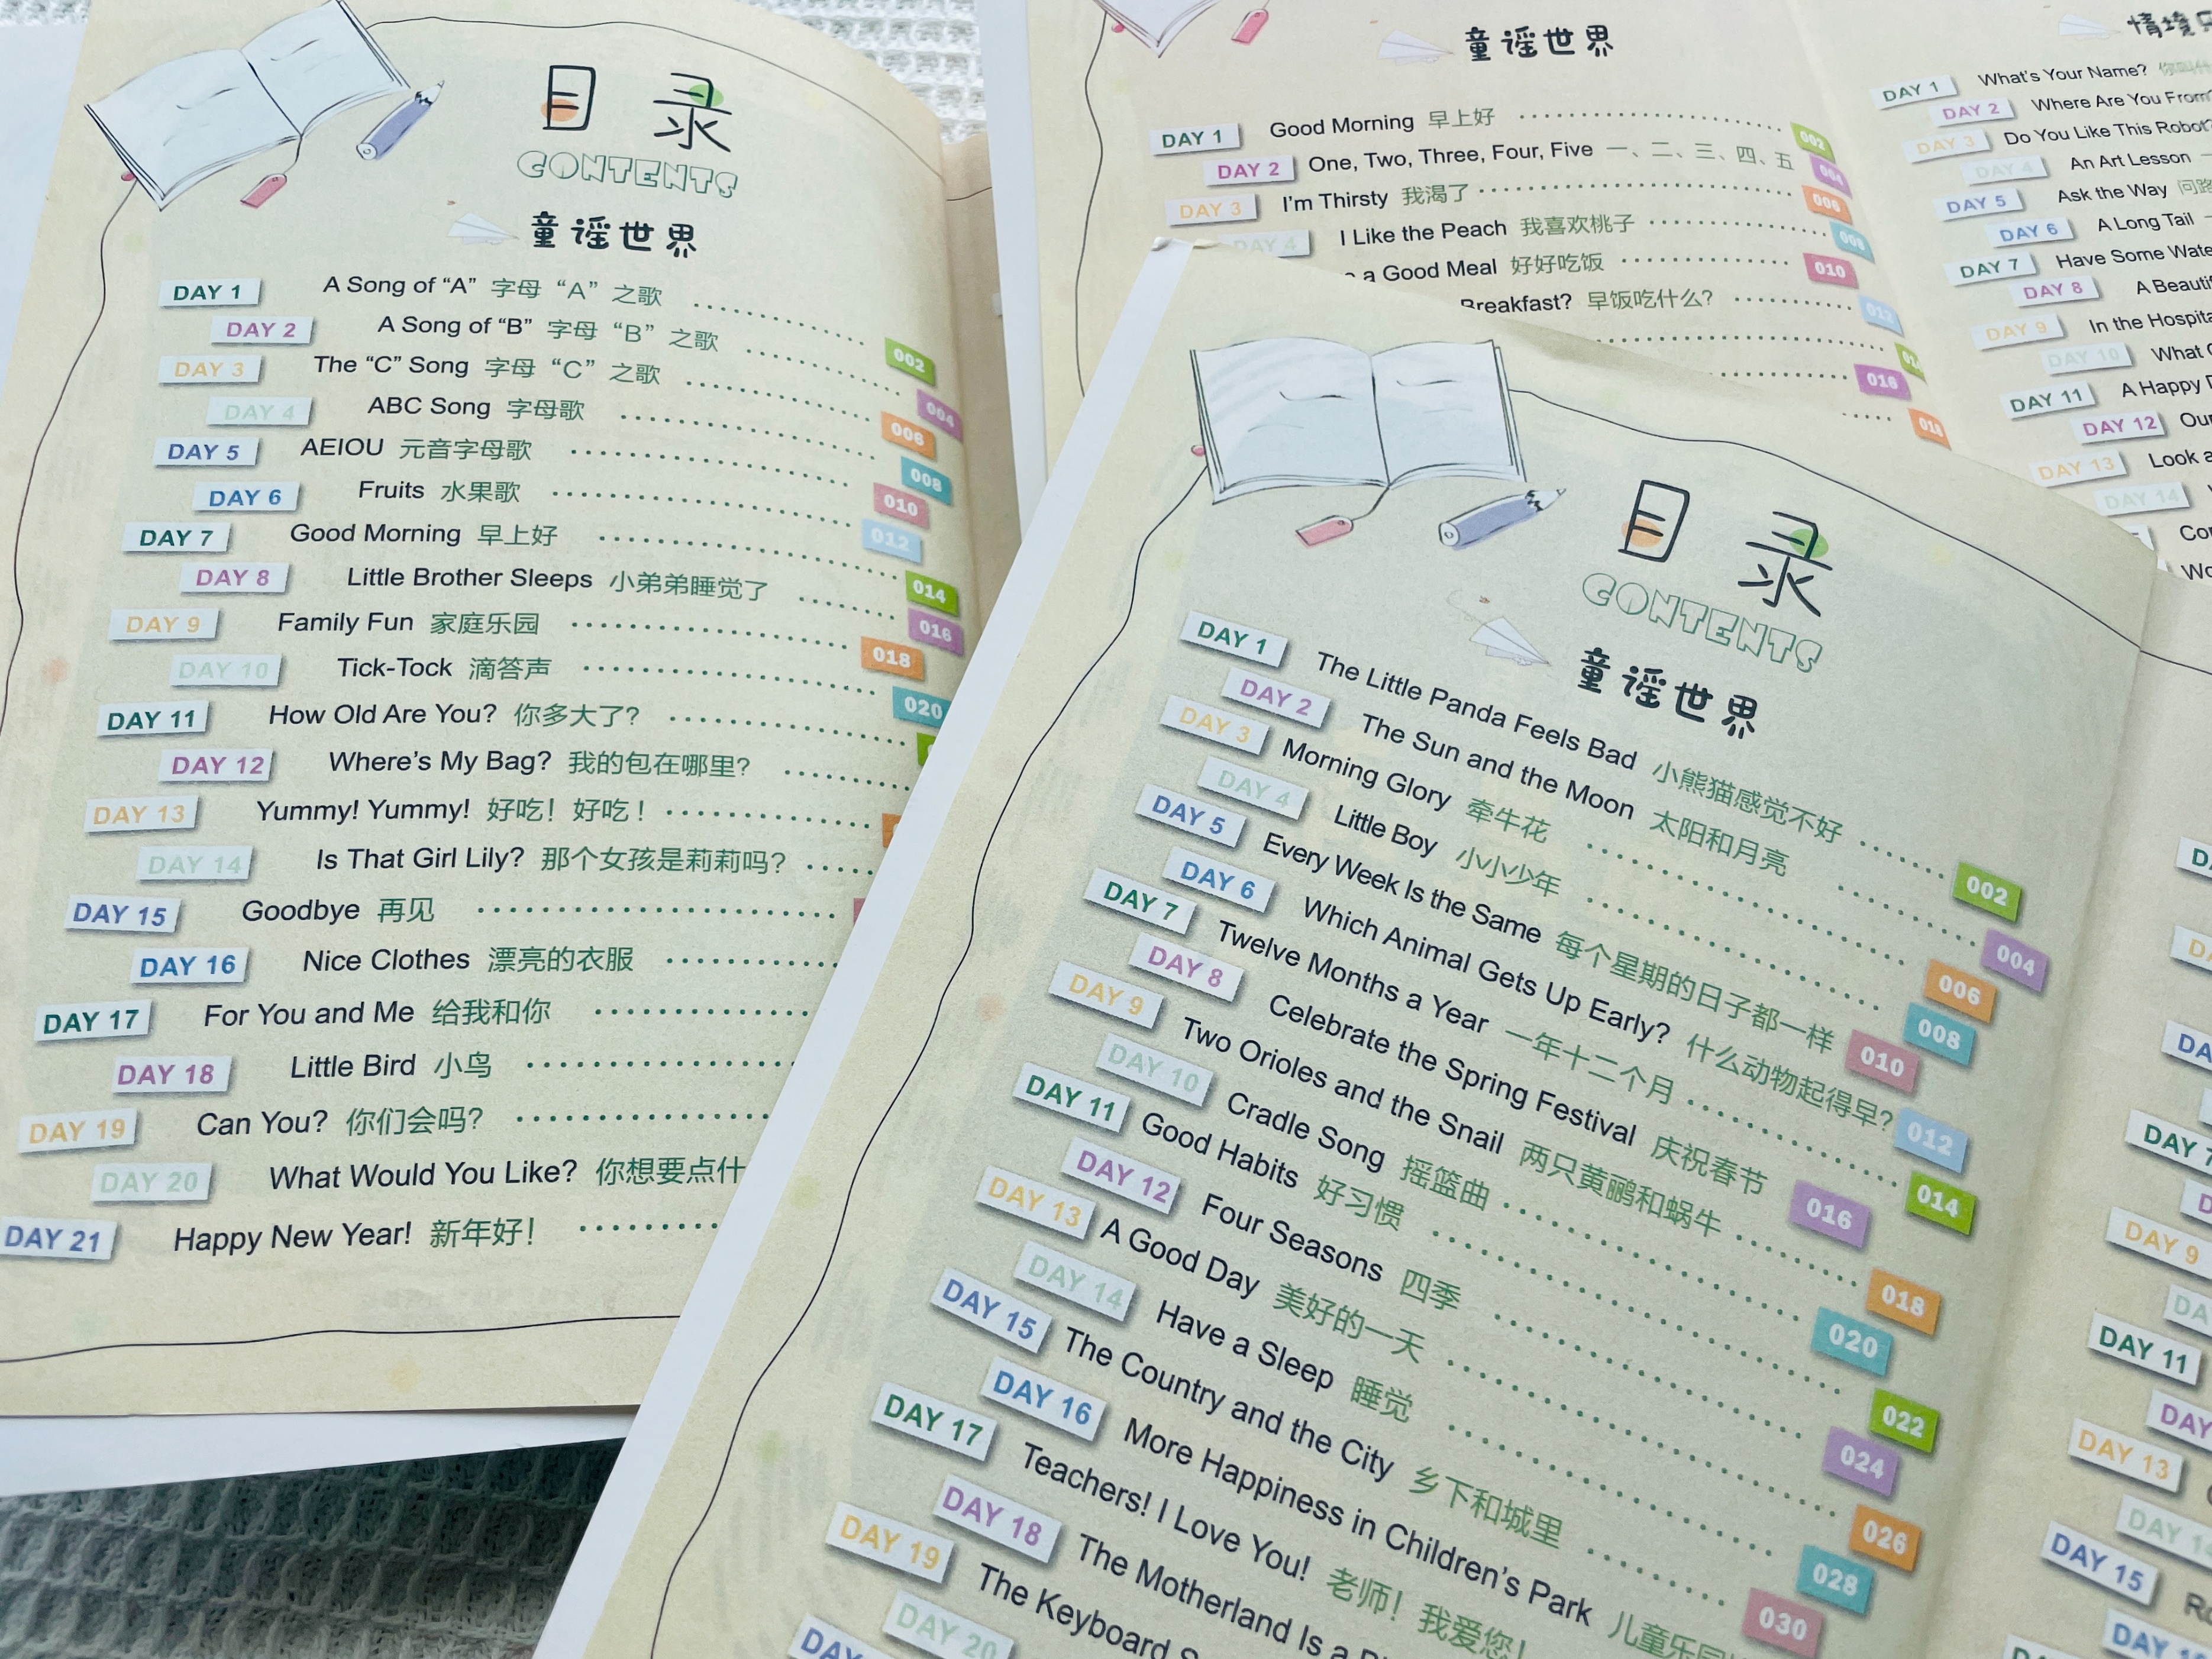 目录
CONTENTS
童谣世界
DAY 1 A Song of “A” 字母“A”之歌 002
DAY 2 A Song of “B” 字母“B”之歌 004
DAY 3 The “C” Song 字母“C”之歌 006
DAY 4 ABC Song 字母歌 008
DAY 5 AEIOU 元音字母歌 010
DAY 6 Fruits 水果歌 012
DAY 7 Good Morning 早上好 014
DAY 8 Little Brother Sleeps 小弟弟睡觉了 016
DAY 9 Family Fun 家庭乐园 018
DAY 10 Tick-Tock 滴答声 020
DAY 11 How Old Are You? 你多大了?
DAY 12 Where’s My Bag? 我的包在哪里?
DAY 13 Yummy! Yummy! 好吃！好吃！
DAY 14 Is That Girl Lily? 那个女孩是莉莉吗?
DAY 15 Goodbye 再见
DAY 16 Nice Clothes 漂亮的衣服
DAY 17 For You and Me 给我和你
DAY 18 Little Bird 小鸟
DAY 19 Can You? 你们会吗?
DAY 20 What Would You Like? 你想要点什
DAY 21 Happy New Year! 新年好！
童谣世界
DAY 1 Good Morning 早上好 002
DAY 2 One, Two, Three, Four, Five 一、二、三、四、五 004
DAY 3 I’m Thirsty 我渴了 006
DAY 4 I Like the Peach 我喜欢桃子 008
a Good Meal 好好吃饭 010
Breakfast? 早饭吃什么? 012
016
018
情境
DAY 1 What’s Your Name?
DAY 2 Where Are You From?
DAY 3 Do You Like This Robot?
DAY 4 An Art Lesson
DAY 5 Ask the Way 问路
DAY 6 A Long Tail
DAY 7 Have Some Wate
DAY 8 A Beautif
DAY 9 In the Hospita
DAY 10 What
DAY 11 A Happy
DAY 12 Our
DAY 13 Look a
DAY 14
目录
CONTENTS
童谣世界
DAY 1 The Little Panda Feels Bad 小熊猫感觉不好 002
DAY 2 The Sun and the Moon 太阳和月亮 004
DAY 3 Morning Glory 牵牛花 006
DAY 4 Little Boy 小小少年 008
DAY 5 Every Week Is the Same 每个星期的日子都一样 010
DAY 6 Which Animal Gets Up Early? 什么动物起得早? 012
DAY 7 Twelve Months a Year 一年十二个月 014
DAY 8 Celebrate the Spring Festival 庆祝春节 016
DAY 9 Two Orioles and the Snail 两只黄鹂和蜗牛 018
DAY 10 Cradle Song 摇篮曲 020
DAY 11 Good Habits 好习惯 022
DAY 12 Four Seasons 四季 024
DAY 13 A Good Day 美好的一天 026
DAY 14 Have a Sleep 睡觉 028
DAY 15 The Country and the City 乡下和城里 030
DAY 16 More Happiness in Children’s Park 儿童乐园
DAY 17 Teachers! I Love You! 老师！我爱您！
DAY 18 The Motherland Is a
DAY 19 The Keyboard S
DAY 20
DAY
DAY 7
DAY 9
DAY 11
DAY
DAY 13
DAY 14
DAY 15
DAY